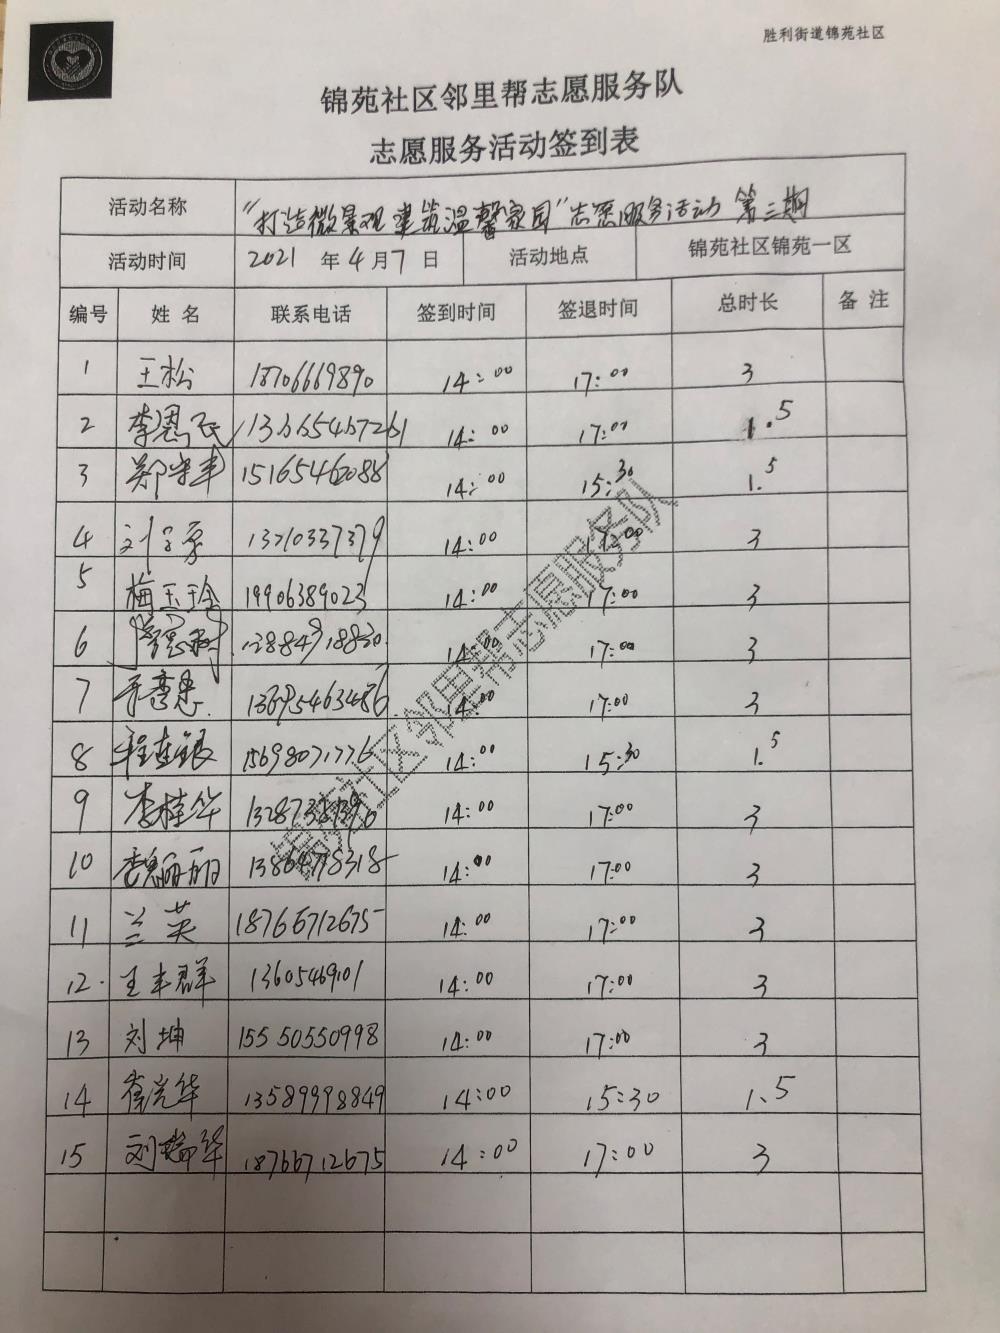 胜利街道锦苑社区
锦苑社区邻里帮志愿服务队
志愿服务活动签到表
活动名称 “打造微景观 建筑温馨家园”志愿服务活动 第三期
活动时间 2021 年 4 月 7 日 活动地点 锦苑社区锦苑一区
编号 姓 名 联系电话 签到时间 签退时间 总时长 备 注
1 王松 18706669890 14:00 17:00 3
2 李恩民 14:00 17:00 1.5
3 15165462088 14:00 15:30 1.5
4 13210337379 14:00 17:00 3
5 梅玉玲 19906389023 14:00 17:00 3
6 14:00 17:00 3
7 14:00 17:00 3
8 程连银 15698071776 14:00 15:30 1.5
9 李桂华 14:00 17:00 3
10 魏丽丽 14:00 17:00 3
11 兰英 18766712675 14:00 17:00 3
12. 王丰群 13605469101 14:00 17:00 3
13 刘坤 155 50550998 14:00 17:00 3
14 13589998849 14:00 15:30 1.5
15 刘瑞华 18766712675 14:00 17:00 3
锦苑社区邻里帮志愿服务队